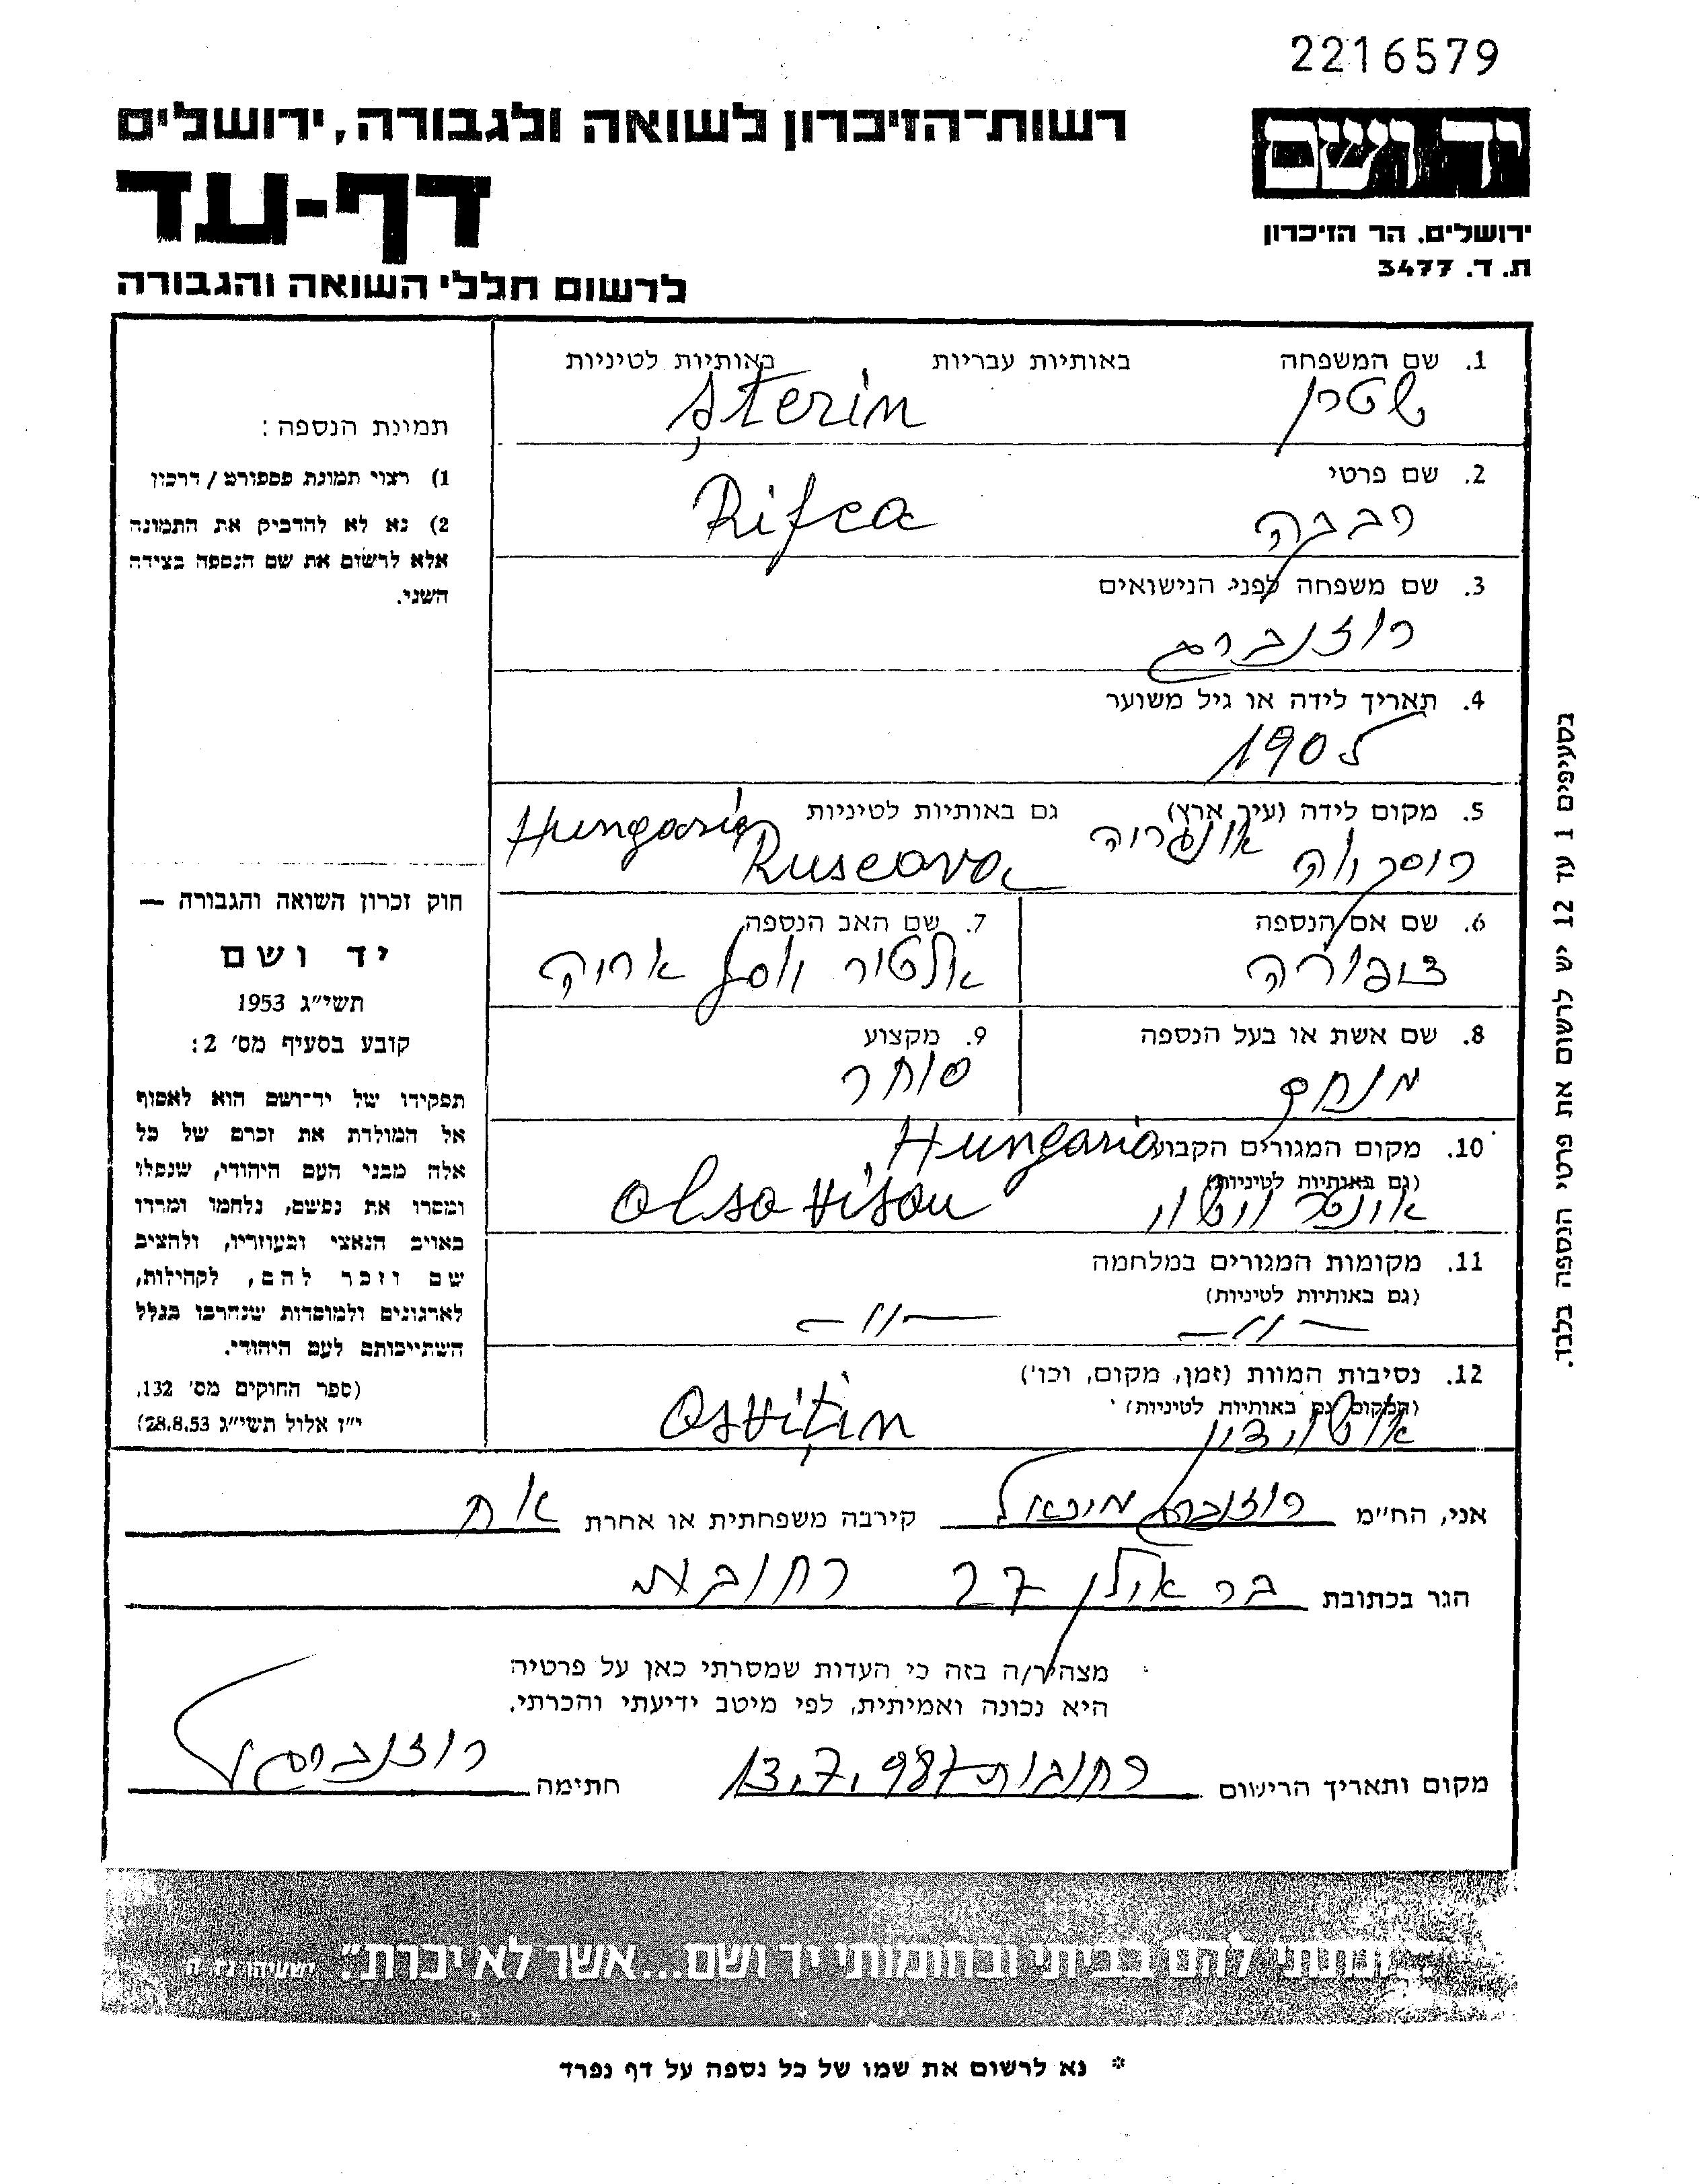 2216579
רשות־הזיכרון לשואה ולגבורה, ירושלים
יד ושם
דף-עד
ירושלים. הר הזיכרון
ת. ד. 3477
לרשום חללי השואה והגבורה
1. שם המשפחה באותיות עבריות באותיות לטיניות
שטרן Șterin
2. שם פרטי
רבקה Rifca
3. שם משפחה לפני הנישואים
רוזנברג
4. תאריך לידה או גיל משוער
1905
5. מקום לידה (עיר, ארץ) גם באותיות לטיניות
אונגריה Hungaria
רוסקווה Ruscova
6. שם אם הנספה
צפורה
7. שם האב הנספה
אלטר יוסף
8. שם אשת או בעל הנספה
מנחם
9. מקצוע
סוחר
10. מקום המגורים הקבוע Hungaria
(גם באותיות לטיניות)
אונטר ווישו
11. מקומות המגורים במלחמה
(גם באותיות לטיניות)
—〃— —〃—
12. נסיבות המוות (זמן, מקום, וכו')
(המקום גם באותיות לטיניות)
Osvițin
תמונת הנספה:
1) רצוי תמונת פספורט / דרכון
2) נא לא להדביק את התמונה
אלא לרשום את שם הנספה בצידה
השני.
חוק זכרון השואה והגבורה —
יד ושם
תשי״ג 1953
קובע בסעיף מס׳ 2:
תפקידו של יד־ושם הוא לאסוף
אל המולדת את זכרם של כל
אלה מבני העם היהודי, שנפלו
ומסרו את נפשם, נלחמו ומרדו
באויב הנאצי ובעוזריו, ולהציב
שם וזכר להם, לקהילות,
לארגונים ולמוסדות שנחרבו בגלל
השתייכותם לעם היהודי.
(ספר החוקים מס׳ 132,
י״ז אלול תשי״ג 28.8.53)
בסעיפים 1 עד 12 יש לרשום את פרטי הנספה בלבד.
אני, הח״מ רוזנברג מיכאל קירבה משפחתית או אחרת אח
הגר בכתובת בר אילן 27 רחובות
מצהיר/ה בזה כי העדות שמסרתי כאן על פרטיה
היא נכונה ואמיתית, לפי מיטב ידיעתי והכרתי.
מקום ותאריך הרישום רחובות 13.7.987 חתימה
ונתתי להם בביתי ובחומותי יד ושם...אשר לא יכרת״. ישעיהו נ״ו ה
* נא לרשום את שמו של כל נספה על דף נפרד